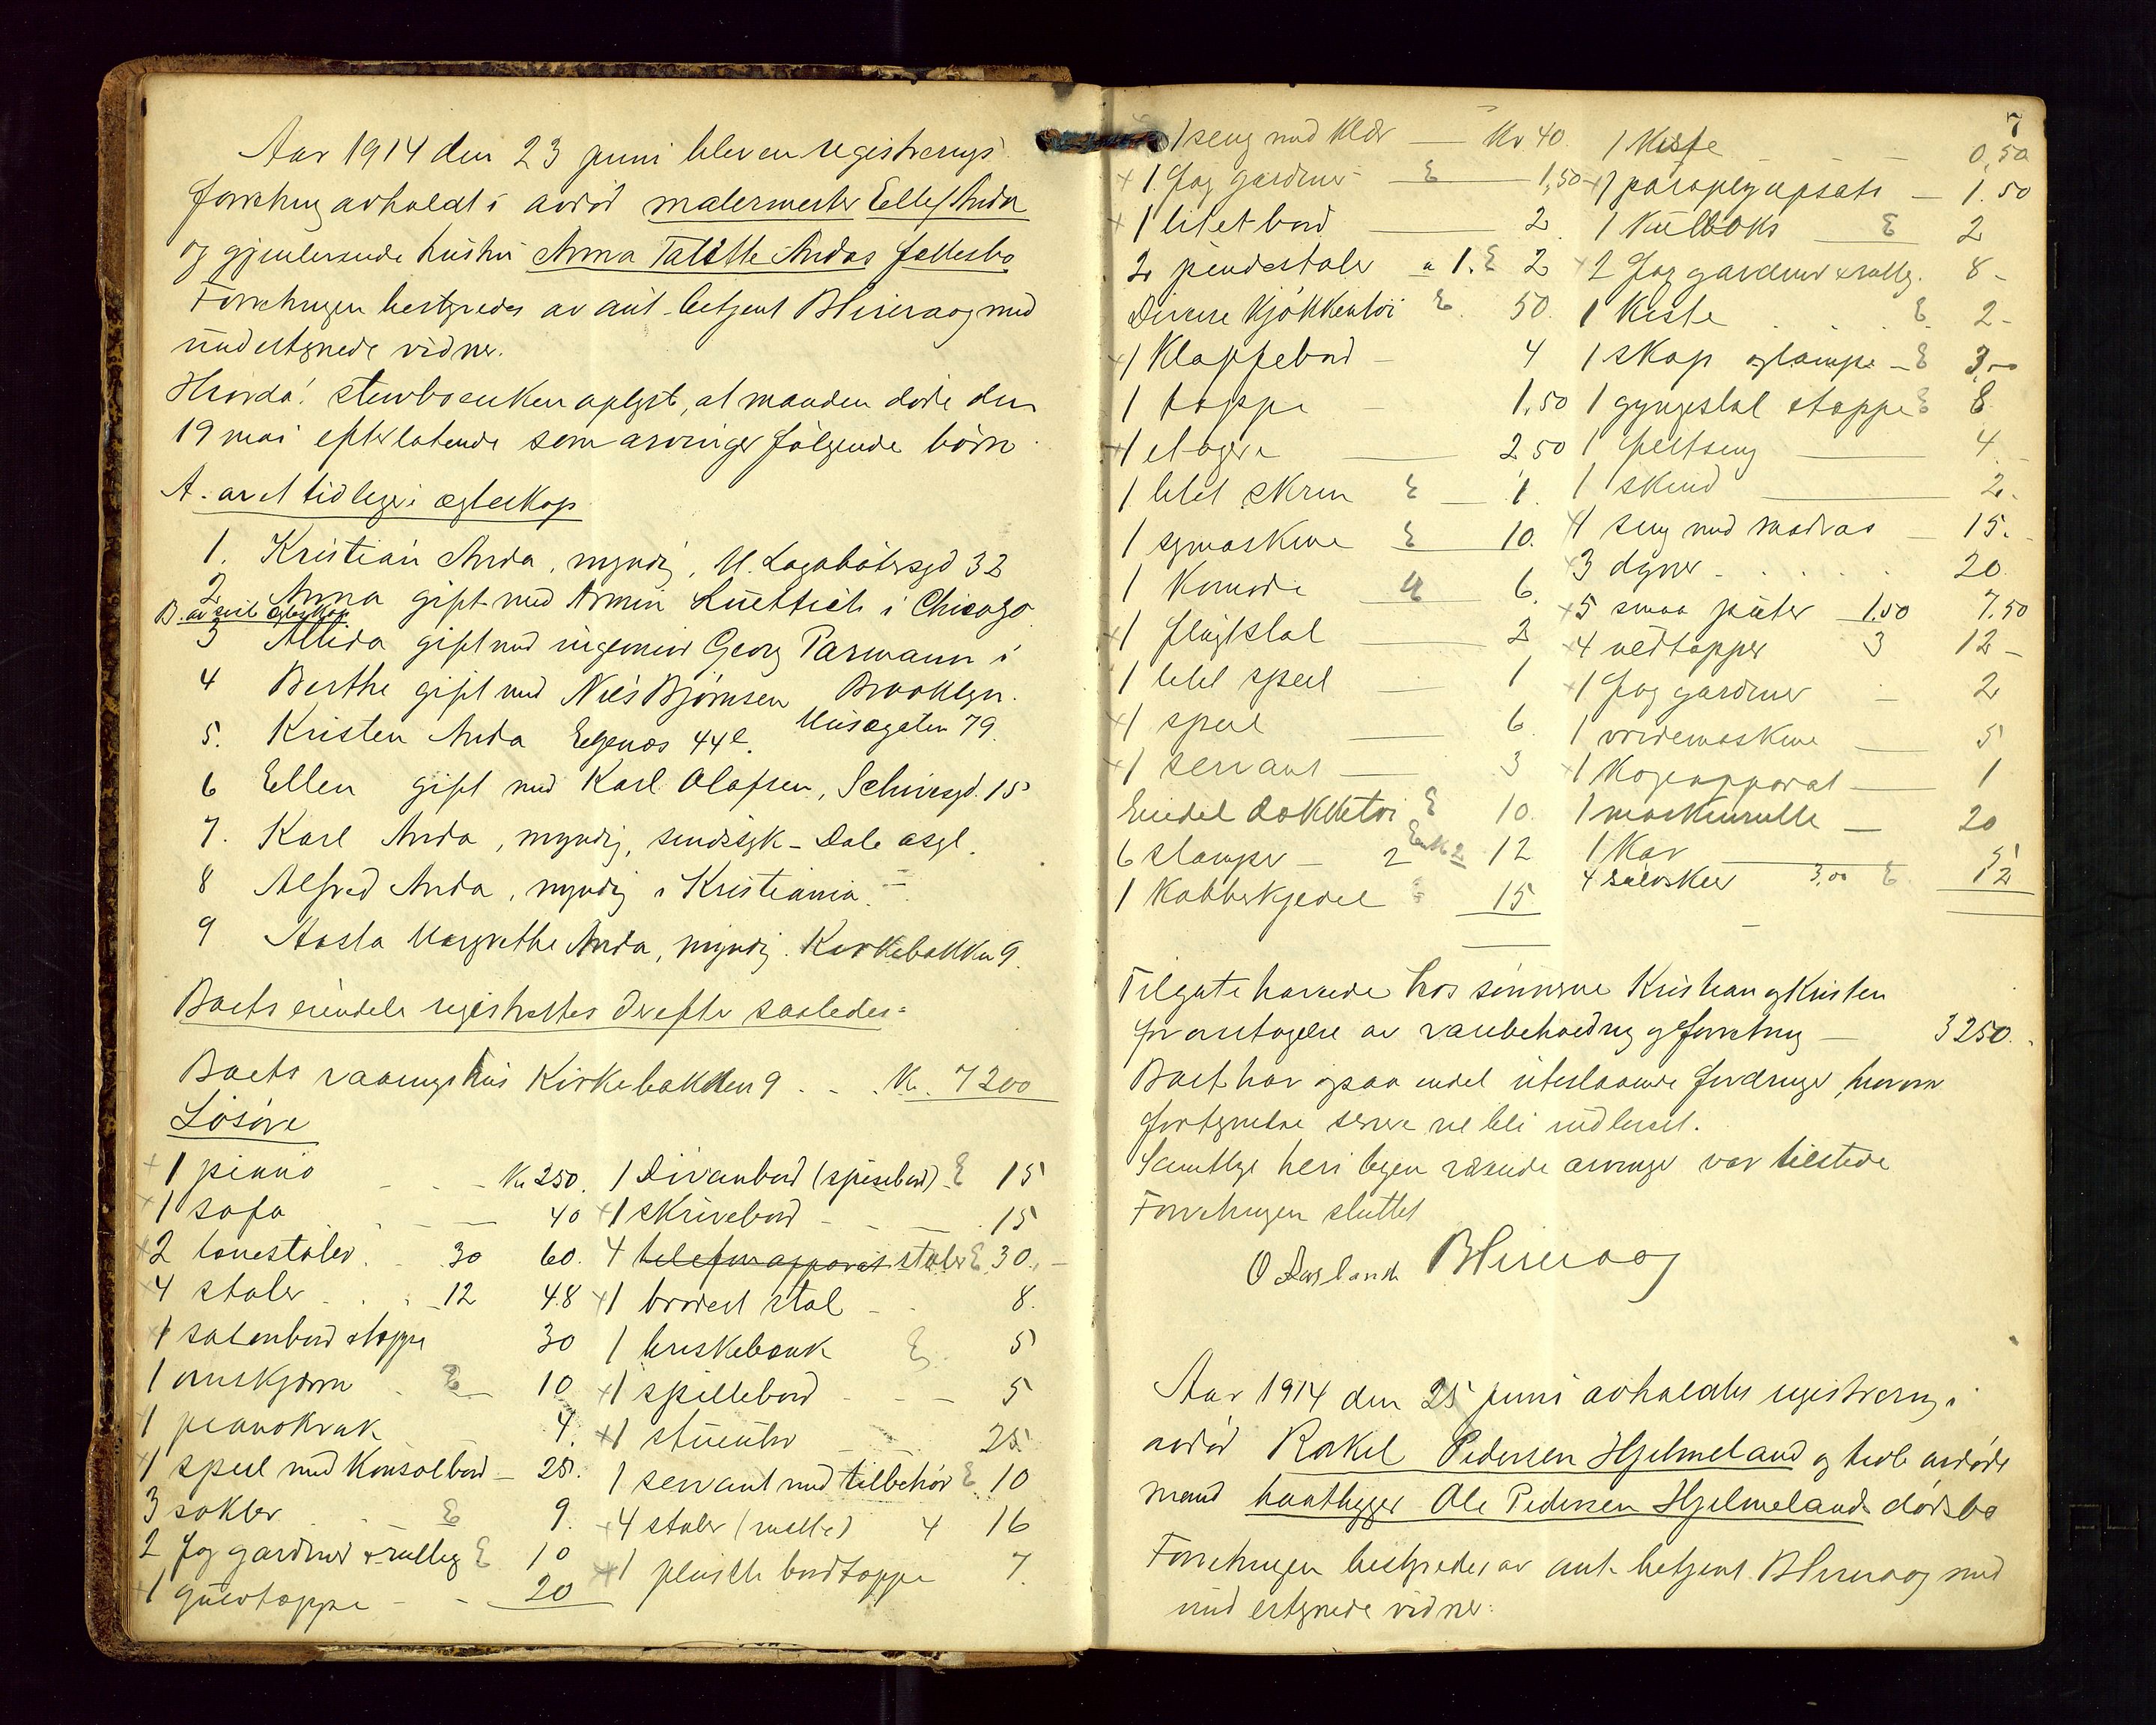 Aar 1914 den 23 juni blev en registrerings
forretning avholdt i avdød malermester Ellef Anda
og gjenlevende hustru Anna Talette Andas fællesbo
Forretningen bestyredes av aut. betjent B Hircaag med
undertegnede vidner.
Hvorda! sterboenken oplyst, at manden døde den
19 mai efterlatende som arvinger følgende børn
A. av et tidligere ægteskap
1. Kristian Anda, myndig, M. Lagabøtersgd 32
2 Anna gift med Armin Luettich i Chicago
B. av siste ægteskap
3 Allida gift med ingeniør Georg Parmann i
Brooklyn.
4 Berthe gift med Niels Bjørnsen
Musægaten 79.
5. Kristen Anda Egenæs 44e.
6 Ellen gift med Karl Olafsen, Schivesgd. 15
7. Karl Anda, myndig, sindssyk - Dale asyl.
8 Alfred Anda, myndig i Kristiania
9 Aasta Margrethe Anda, myndig. Kirkebakken 9.
Boets eiendele registrertes derefter saaledes:
Boets vaaningshus Kirkebakken 9 . . Kr. 7200
Løsøre
1 piano - - - Kr 250.
1 sofa 40
2 lænestoler 30 60.
4 stoler 12 48
1 salonbord & teppe 30
1 ovnskjærm E 10
1 pianokrak 4.
1 speil med Konsolbord - 25.
3 sokler E 9.
2 fag gardiner & rulleg E 10
1 gulvteppe - - 20
1 Divanbord (spisebord) E 15
1 skrivebord 15
4 telefonapparat stoler E 30.-
1 broderet stol 8.
1 briskebænk E 5
1 spillebord 5
1 stueuhr 25
1 servant med tilbehør E 10
4 stoler (røtte) 4 16
1 plysch bordteppe 7.
7
1 seng med klær — Kr 40.
1 fag gardiner E 1,50
1 litet bord 2
2 pindestoler a 1. E 2
Diverse kjøkkentøi E 50.
1 Klappebord - 4
1 teppe 1,50
1 etagere 2 50
1 litet skrin E 1.
1 symaskine E 10.
1 Komode 6.
1 fløistol 2
1 litet speil 1
1 speil 6
1 servant 3
Endel dækketøi E 10.
6 stamper - 2 12
1 Kobberkjedel E 15
1 Kiste 0,50
1 paraplyopsats - 1.50
1 Kulboks E 2
2 fag gardiner & rulleg. 8 -
1 Kiste E 2 -
1 skap og lampe - E 3,00
1 gyngestol & teppe E 8
1 feltseng 4
1 skind 2.
1 seng med madras - 15.
3 dyner 20.
5 smaa puter 1.50 7.50
4 uldtepper 3 12 -
1 fag gardiner - 2
1 vridemaskine 5
1 Kogeapparat 1
1 maskinrulle - 20
1 Kar 5
4 sølvskeer 3,00 E. 12
Tilgate havende hos sønnerne Kristian og Kristen
for overtagelse av varebeholdning og forretning — 3250.
Boet har ogsaa endel utestaaende fordringer, hvorom
fortegnelse senere vil bli indlevert.
Samtlige heri byen værende arvinger var tilstede
Forretningen sluttet
O Aasland B Hircaag
Aar 1914 den 25 juni avholdtes registrering i
avdød Rakel Pedersen Hjelmeland og tidl. avdøde
mand baatbygger Ole Pedersen Hjelmelands dødsbo
Forretningen bestyredes av aut. betjent B Hircaag med
undertegnede vidner: